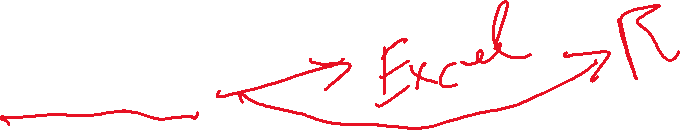 Excel R